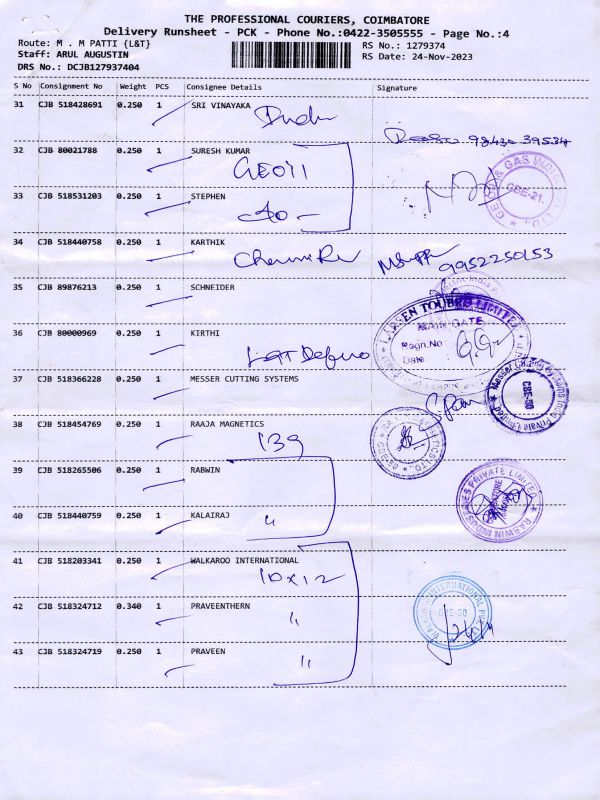 THE PROFESSIONAL COURIERS, COIMBATORE
Delivery Runsheet - PCK - Phone No.:0422-3505555 - Page No.:4
Route: M . M PATTI {L&T}
RS No.: 1279374
Staff: ARUL AUGUSTIN
RS Date: 24-Nov-2023
DRS No.: DCJB127937404
S No Consignment No Weight PCS Consignee Details Signature
31 CJB 518428691 0.250 1 SRI VINAYAKA
98432 39534
32 CJB 80021788 0.250 1 SURESH KUMAR
GEO11
CBE-21.
33 CJB 518531203 0.250 1 STEPHEN
34 CJB 518440758 0.250 1 KARTHIK
9952250153
35 CJB 89876213 0.250 1 SCHNEIDER
LARSEN TOUBRO LIMITED
MAIN GATE
36 CJB 80000969 0.250 1 KIRTHI
Regn.No
Date
37 CJB 518366228 0.250 1 MESSER CUTTING SYSTEMS
CBE-50
38 CJB 518454769 0.250 1 RAAJA MAGNETICS
139
39 CJB 518265506 0.250 1 RABWIN
RABWIN INDUSTRIES PRIVATE LIMITED
40 CJB 518440759 0.250 1 KALAIRAJ
"
41 CJB 518203341 0.250 1 WALKAROO INTERNATIONAL
10x12
42 CJB 518324712 0.340 1 PRAVEENTHERN
"
CBE-50
43 CJB 518324719 0.250 1 PRAVEEN
"